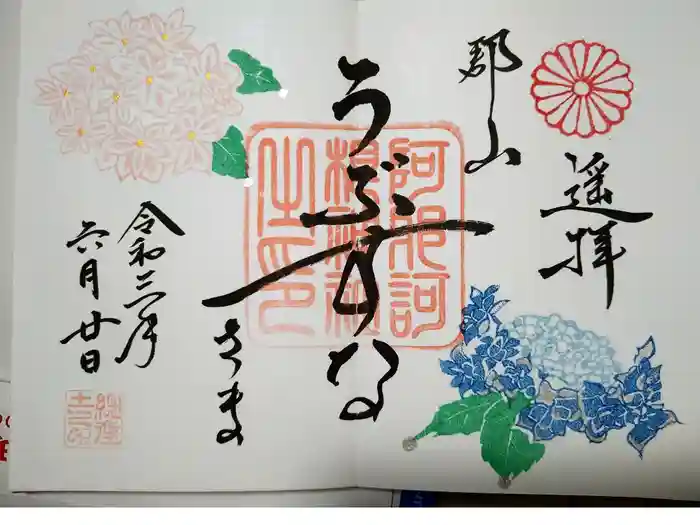 遥拝
郡山
うぶすな
さま
阿邪訶
根神社
之印
令和三年
六月廿日